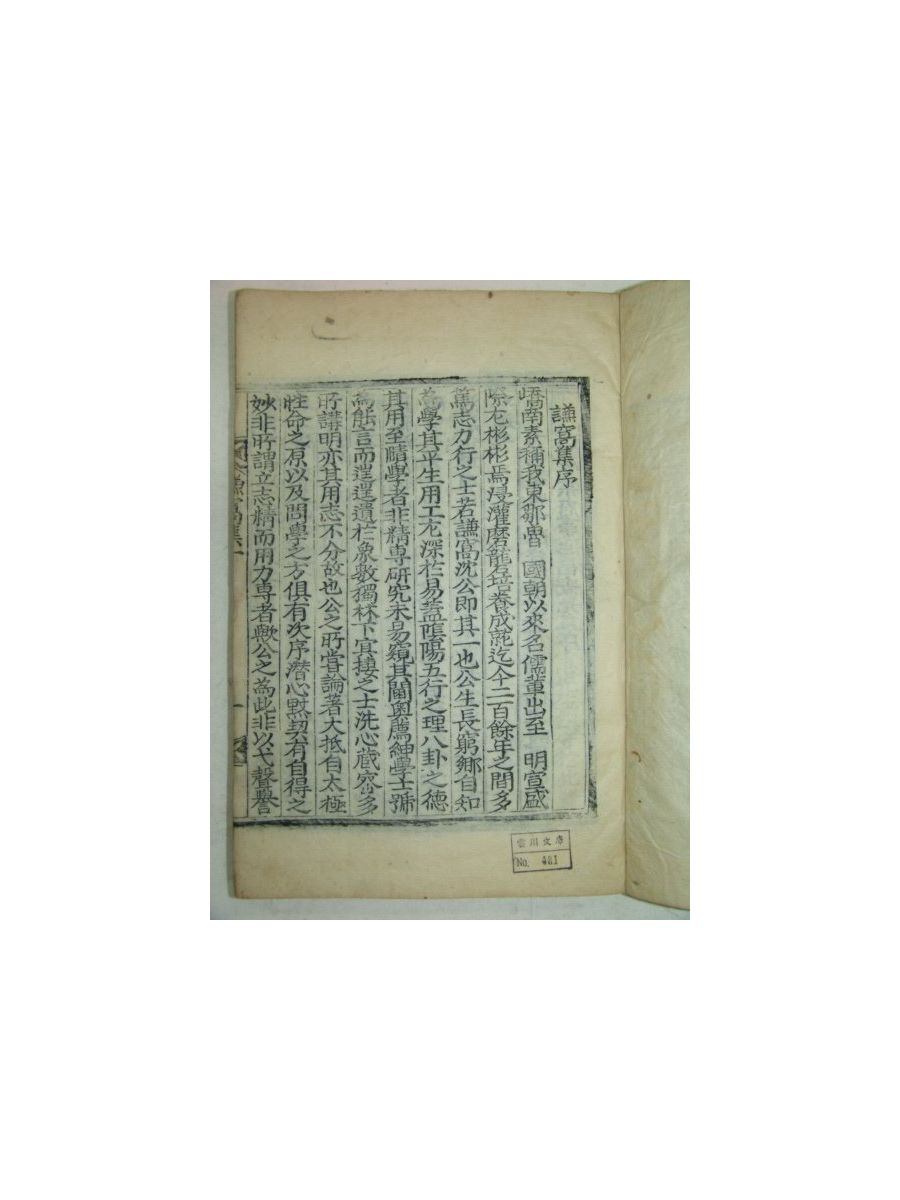 謙窩集序
嶠南素稱我東鄒魯　國朝以來名儒輩出至　明宣盛
際尤彬彬焉浸灌磨礲培養成就迄今二百餘年之間多
篤志力行之士若謙窩沈公即其一也公生長窮鄉自知
為學其平生用工尤深於易蓋陰陽五行之理八卦之德
其用至賾學者非精專研究未易窺其閫奧薦紳學士號
為能言而逞逞遺於象數獨林下冥棲之士洗心藏密多
所講明亦其用志不分故也公之所嘗論著大抵自太極
性命之原以及問學之方俱有次序潜心默契有自得之
妙非所謂立志精而用力專者歟公之為此非以弋聲譽
雲川文庫
No. 481